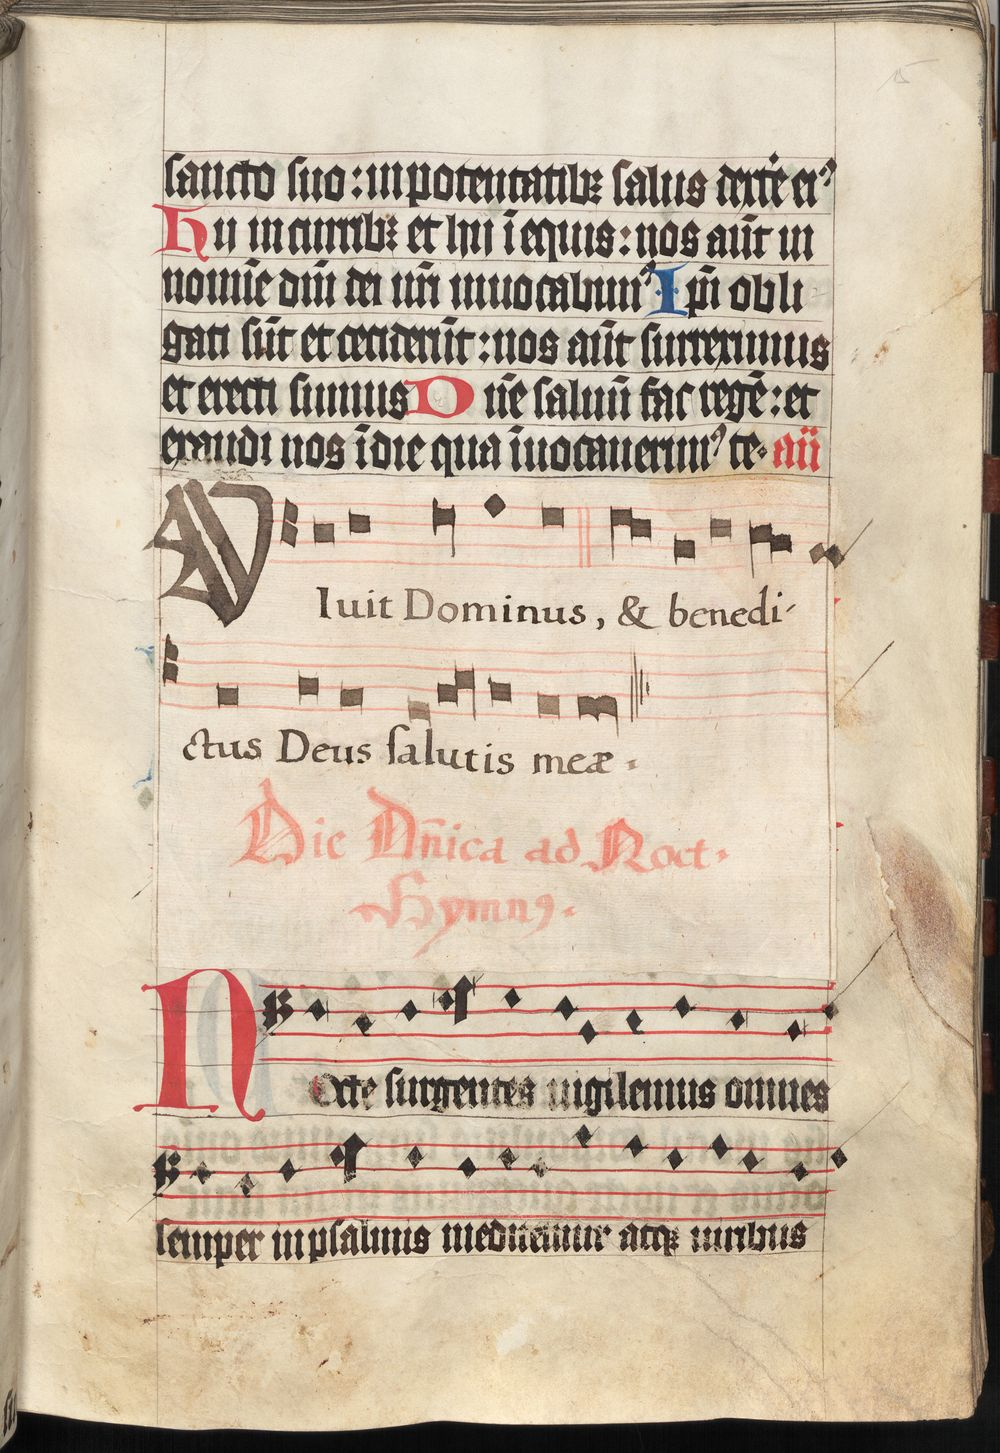 15
sancto suo : in potentatibꝫ salus dext̾e eiꝰ
Hii in curribꝫ et hii ī equis : nos aūt in
nomīe dn̄i dei nr̄i invocabimꝰ Ip̄i obli
gati sūt et ceciderūt : nos aūt surreximus
et erecti sumus Dn̄e salvū fac regē : et
exaudi nos ī die qua īvocaverimꝰ te · an̄
VIuit Dominus, & benedi-
ctus Deus ſalutis meæ .
Die Dn̄ica ad Noct.
Hymnꝰ.
Nocte surgentes vigilemus omnes
semper in psalmis meditemur atqꝫ viribus